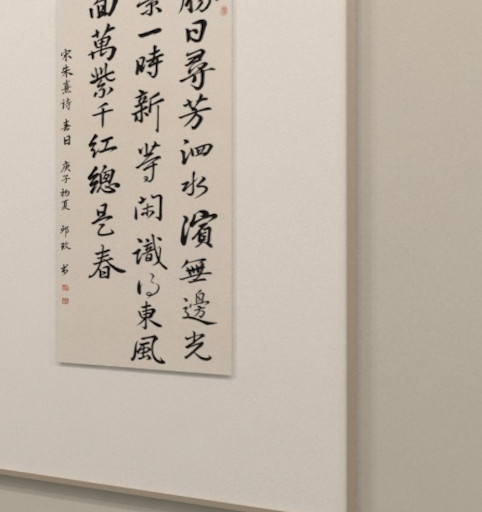 勝日尋芳泗水濱無邊光
景一時新等閑識得東風
面萬紫千紅總是春
宋朱熹诗 春日 庚子初夏 邱玫 书